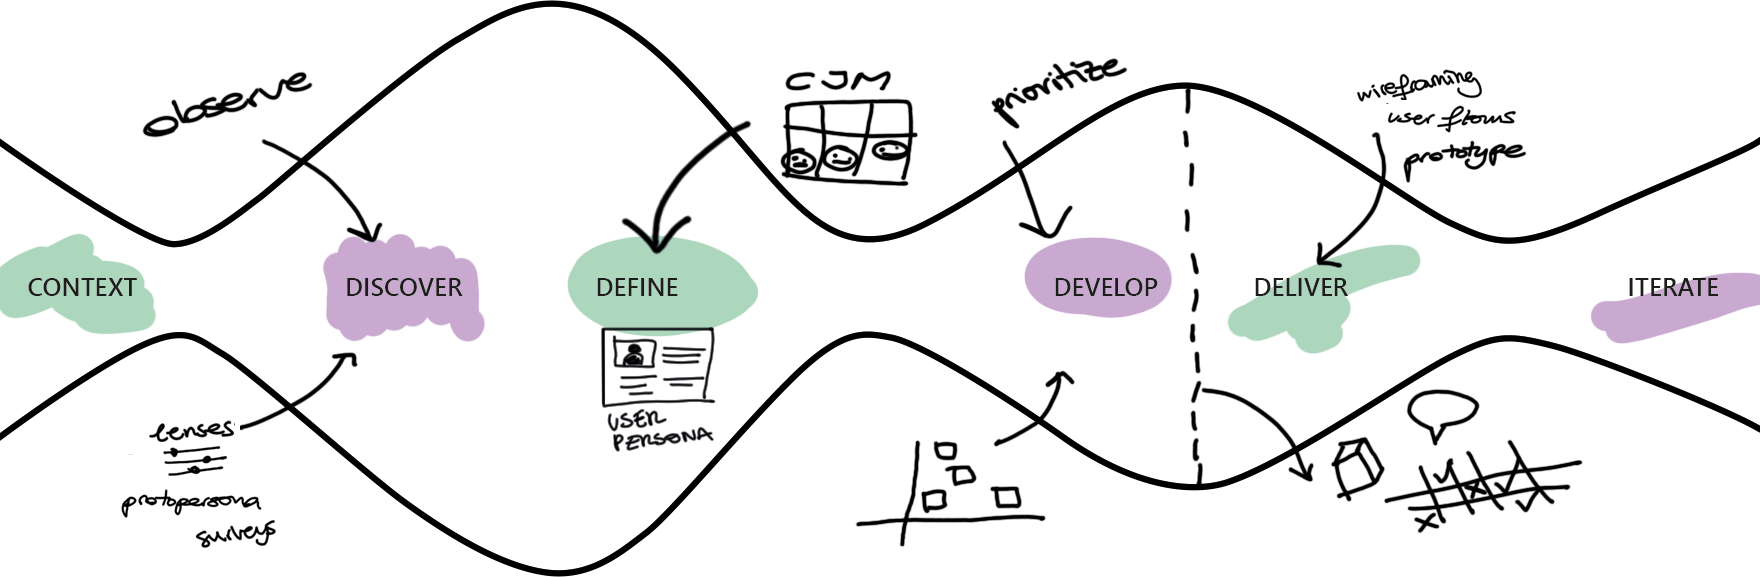 observe
CJM
prioritize
wireframing
user flows
prototype
CONTEXT
DISCOVER
DEFINE
DEVELOP
DELIVER
ITERATE
lenses
protopersona
surveys
USER
PERSONA